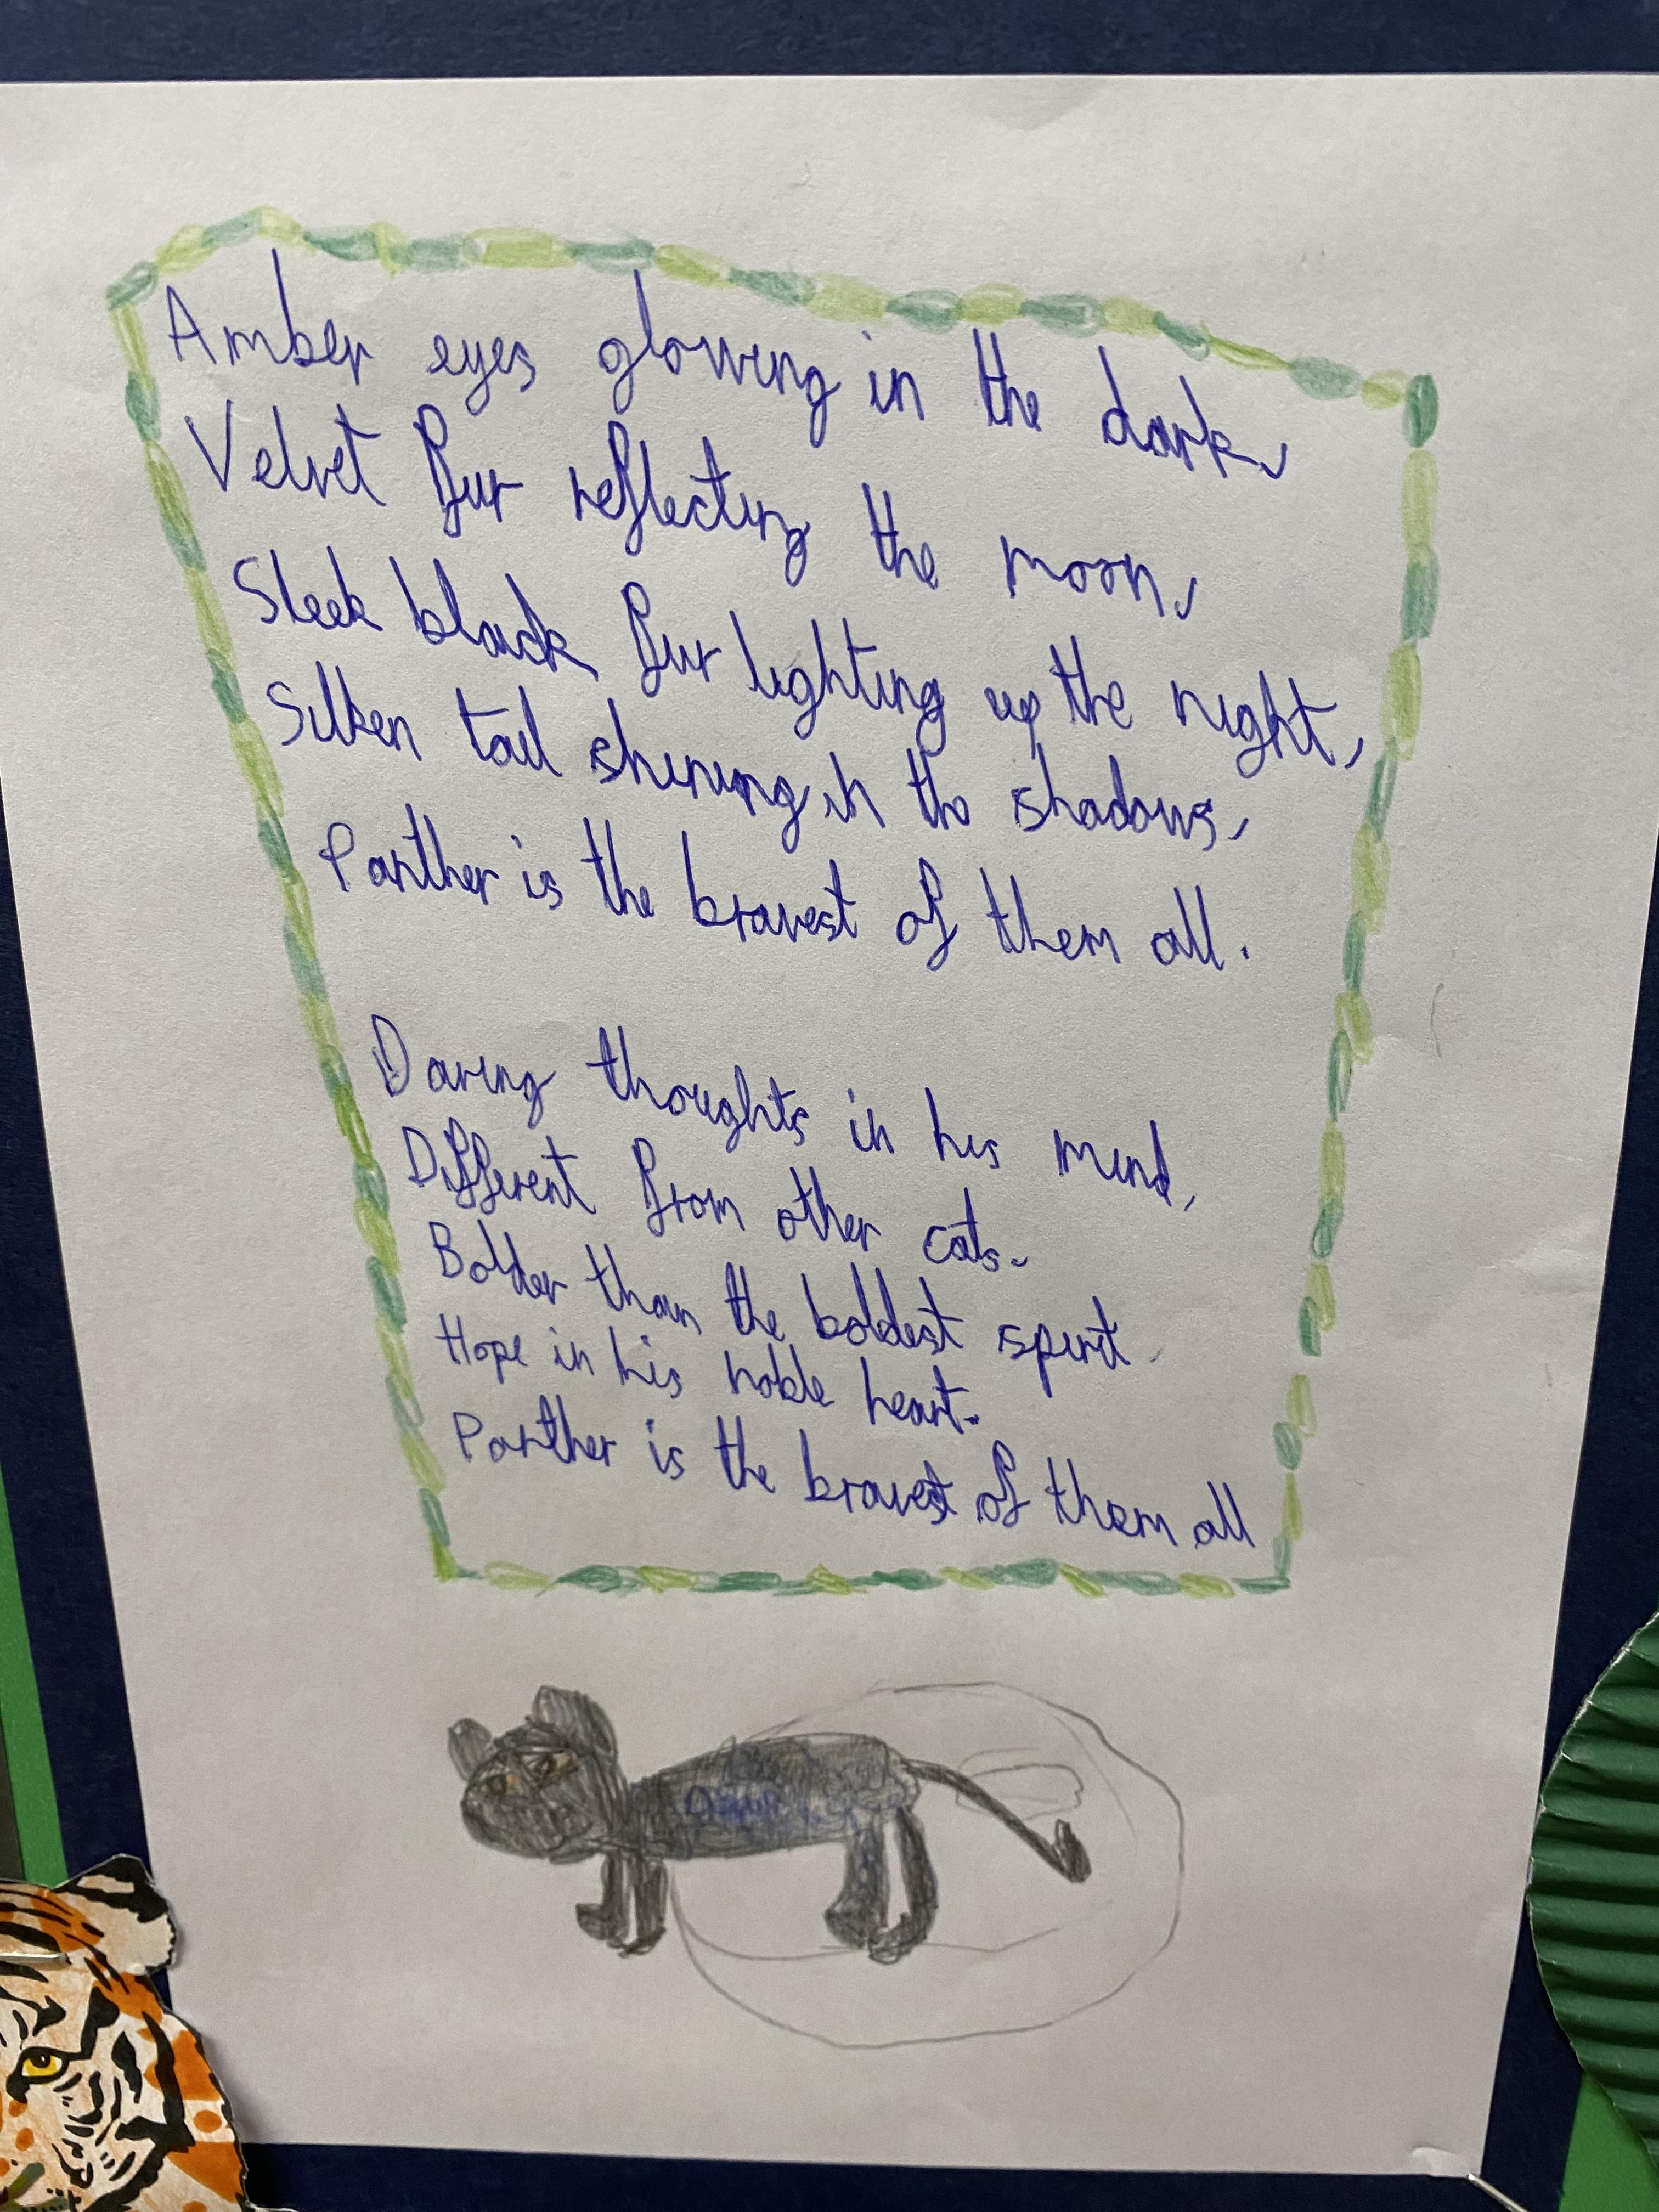 Amber eyes glowing in the dark,
Velvet fur reflecting the moon,
Sleek black fur lighting up the night,
Silken tail shining in the shadows,
Panther is the bravest of them all.
Daring thoughts in his mind,
Different from other cats.
Bolder than the boldest spirit
Hope in his noble heart.
Panther is the bravest of them all